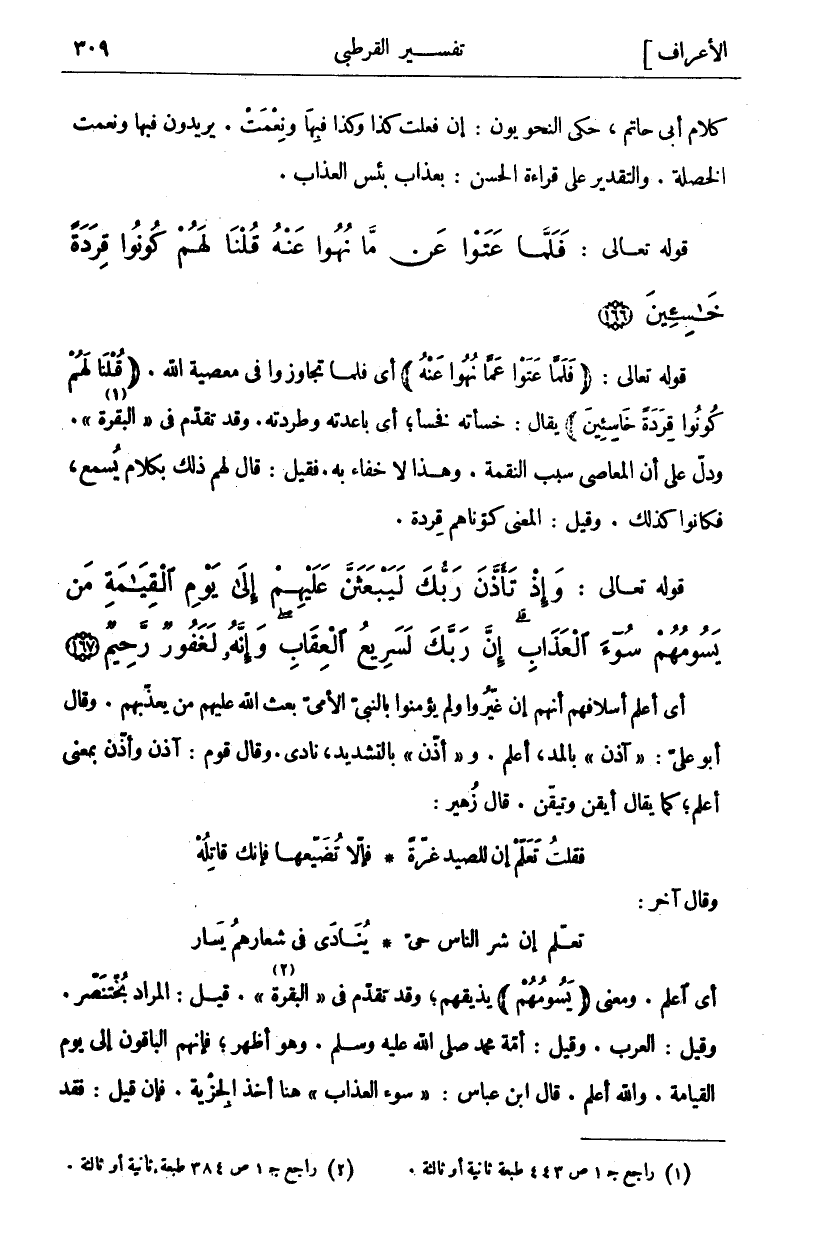 الأعراف ] تفسـير القرطبى ٣٠٩
كلام أبى حاتم ، حكى النحويون : إن فعلت كذا وكذا فبِهَا ونِعْمَتْ . يريدون فبها ونعمت
الخصلة . والتقدير على قراءة الحسن : بعذاب بئس العذاب .
قوله تعـالى : فَلَمَّا عَتَوْا عَن مَّا نُهُوا عَنْهُ قُلْنَا لَهُمْ كُونُوا قِرَدَةً
خَـٰسِـِٔينَ ١٦٦
قوله تعالى : ﴿ فَلَمَّا عَتَوْا عَمَّا نُهُوا عَنْهُ ﴾ أى فلمـا تجاوزوا فى معصية الله . ﴿ قُلْنَا لَهُمْ
كُونُوا قِرَدَةً خَاسِئِينَ ﴾ يقال : خسأته فخسأ؛ أى باعدته وطردته. وقد تقدّم فى « البقرة (١) » .
ودلّ على أن المعاصى سبب النقمة . وهـذا لا خفاء به. فقيل : قال لهم ذلك بكلام يُسمع،
فكانوا كذلك . وقيل : المعنى كوّناهم قِردة .
قوله تعـالى : وَإِذْ تَأَذَّنَ رَبُّكَ لَيَبْعَثَنَّ عَلَيْهِمْ إِلَىٰ يَوْمِ ٱلْقِيَـٰمَةِ مَن
يَسُومُهُمْ سُوٓءَ ٱلْعَذَابِ ۗ إِنَّ رَبَّكَ لَسَرِيعُ ٱلْعِقَابِ ۖ وَإِنَّهُۥ لَغَفُورٌ رَّحِيمٌ ١٦٧
أى أعلم أسلافهم أنهم إن غيّروا ولم يؤمنوا بالنبىّ الأمىّ بعث الله عليهم من يعذّبهم . وقال
أبو علىّ : « آذن » بالمد، أعلم . و « أذّن » بالتشديد، نادى. وقال قوم : آذن وأذّن بمعنى
أعلم؛ كما يقال أيقن وتيقّن . قال زُهير :
فقلتُ تَعَلّمْ إن للصيد غرّةً * فإلّا تُضَيّعهـا فإنك قاتِلُهْ
وقال آخر :
تعـلّم إن شر الناس حىّ * يُنَـادَى فى شعارهمُ يَسار
أى آعلم . ومعنى ﴿ يَسُومُهُمْ ﴾ يذيقهم؛ وقد تقدّم فى « البقرة (٢) » . قيـل : المراد بُخْتَنَصّر .
وقيل : العرب . وقيل : أمّة محمد صلى الله عليه وسـلم . وهو أظهر؛ فإنهم الباقون إلى يوم
القيامة . والله أعلم . قال ابن عباس : « سوء العذاب » هنا أخذ الجزية . فإن قيل : فقد
(١) راجع جـ ١ ص ٤٤٣ طبعة ثانية أو ثالثة . (٢) راجع جـ ١ ص ٣٨٤ طبعة ثانية أو ثالثة .